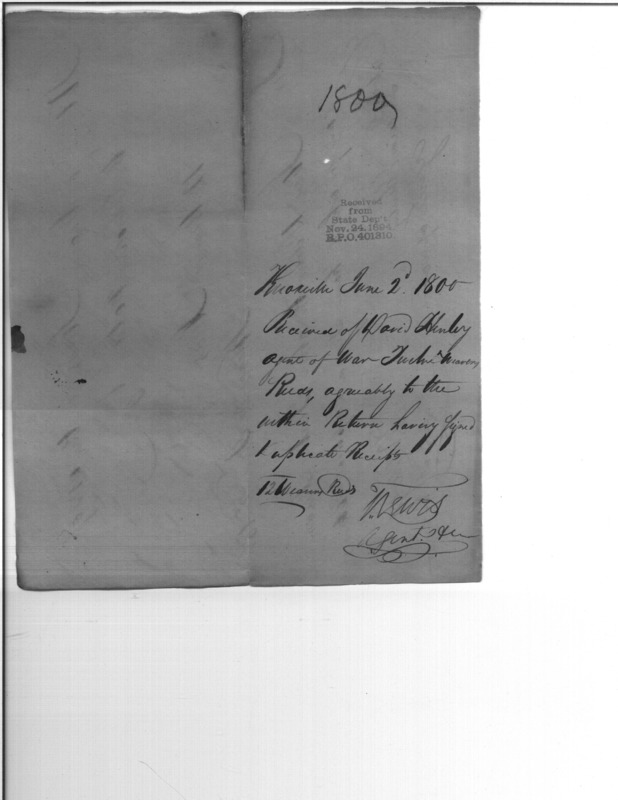 1800
Received
from
State Dep't
Nov. 24. 1894
R.P.O. 401810
Knoxville June 2d. 1800
Received of David Henley
agent of War Twelve Weavers
Reeds, agreeably to the
within Return having signed
Duplicate Receipts
12 Weavers Reeds
Lewis
Agent